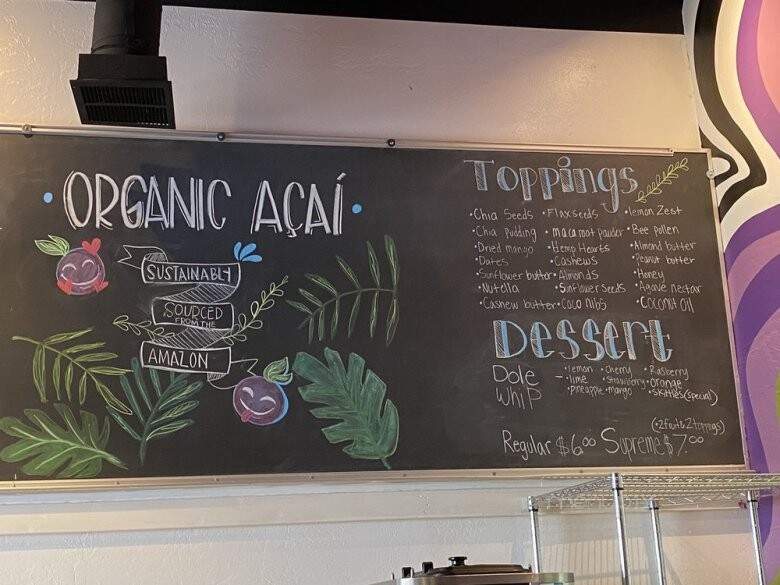 ORGANIC AÇAÍ
SUSTAINABLY
SOURCED
FROM THE
AMAZON
Toppings
•Chia Seeds •Flaxseeds •lemon Zest
•Chia pudding •maca root pauder •Bee pollen
•Dried mango •Hemp Hearts •Almond butter
•Dates •Cashews •Peanut butter
•Sunflower butter •Almonds •Honey
•Nutola •Sunflower Seeds •Agave nectar
•Cashew butter •Coco nibs •Coconut oil
Dessert
Dole Whip - •lemon •cherry •Rasberry
•lime •strawberry •orange
•pineapple •mango •skittles (special)
(•2 fruit & 2 toppings)
Regular $6.00 Supreme $7.00